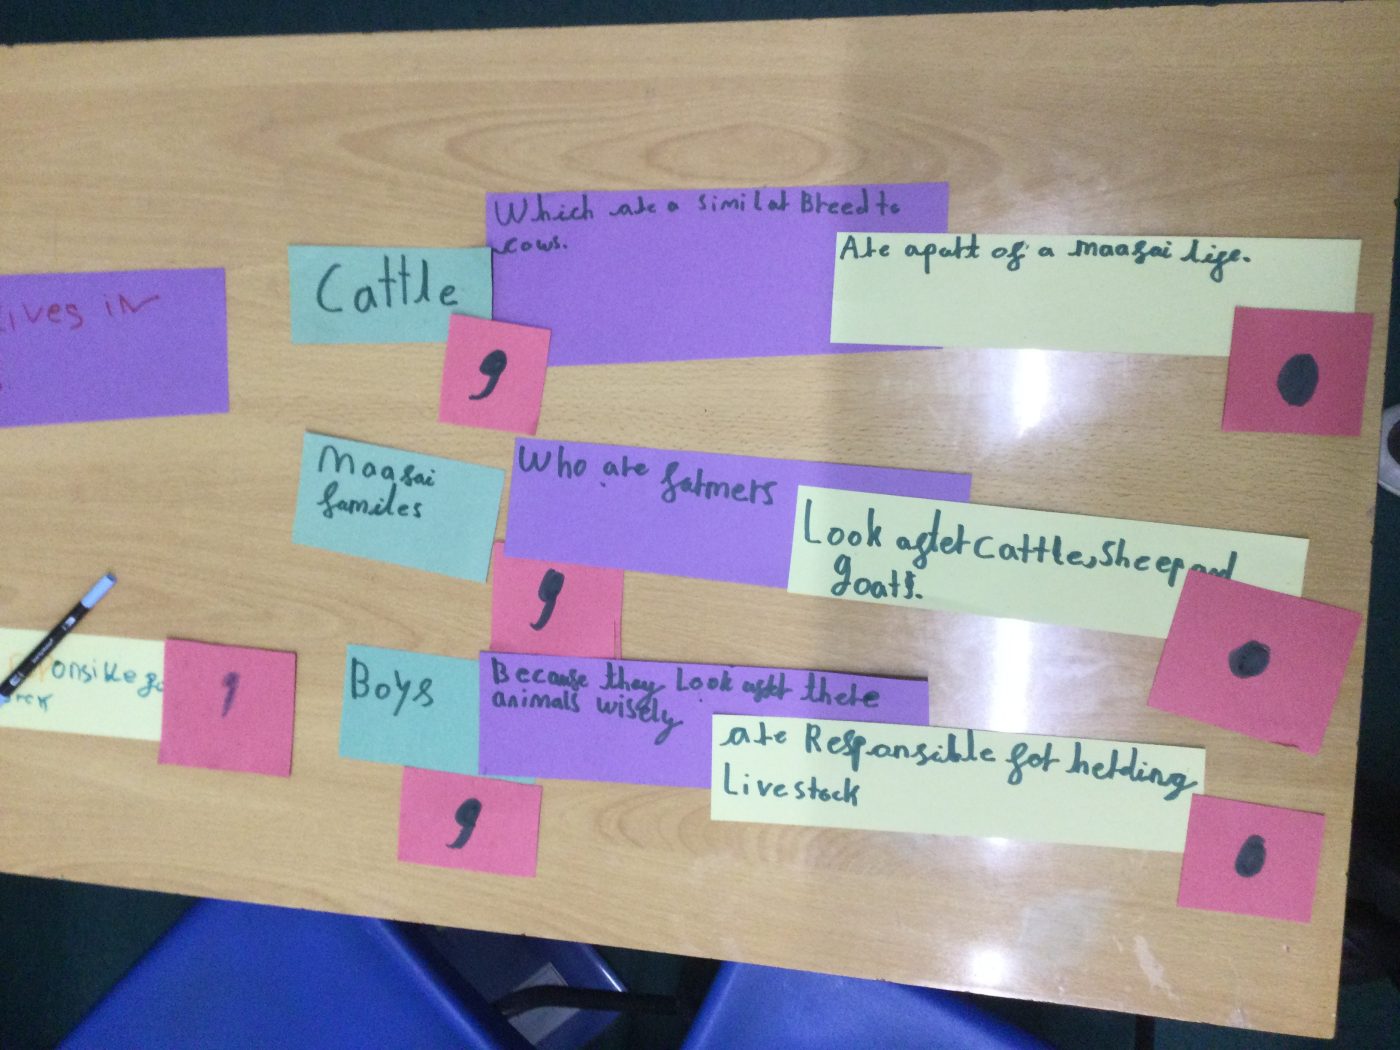 lives in
Cattle
,
Which are a similar Breed to
cows.
Are apart of a maasai life.
.
Maasai
familes
,
Who are farmers
Look after Cattle, Sheep and
goats.
.
onsible fo
,
Boys
,
Because they Look after there
animals wisely
are Responsible for herding
Livestock
.